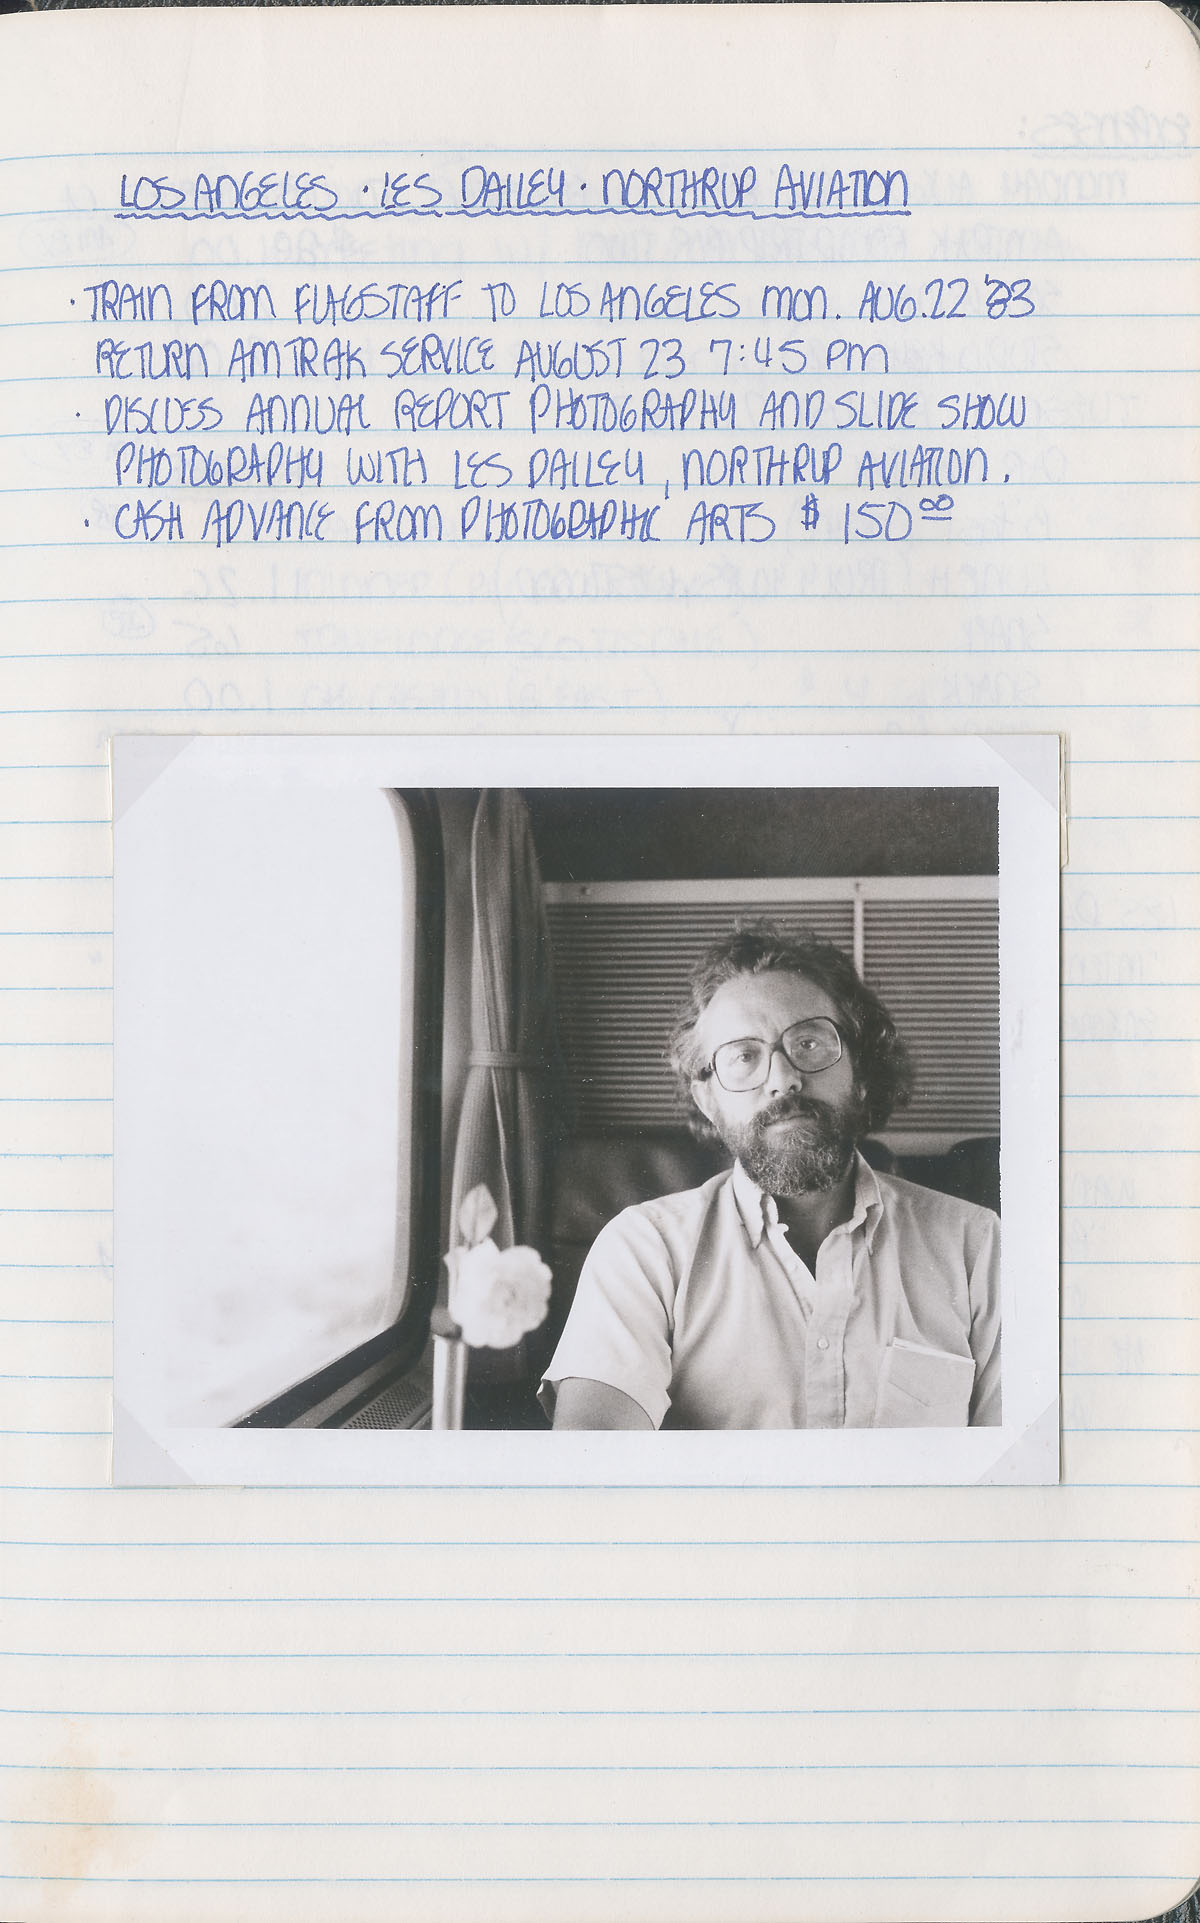 LOS ANGELES · LES DAILEY · NORTHRUP AVIATION
· TRAIN FROM FLAGSTAFF TO LOS ANGELES MON. AUG. 22 '83
RETURN AMTRAK SERVICE AUGUST 23 7:45 PM
· DISCUSS ANNUAL REPORT PHOTOGRAPHY AND SLIDE SHOW
PHOTOGRAPHY WITH LES DAILEY, NORTHRUP AVIATION.
· CASH ADVANCE FROM PHOTOGRAPHIC ARTS $150.00